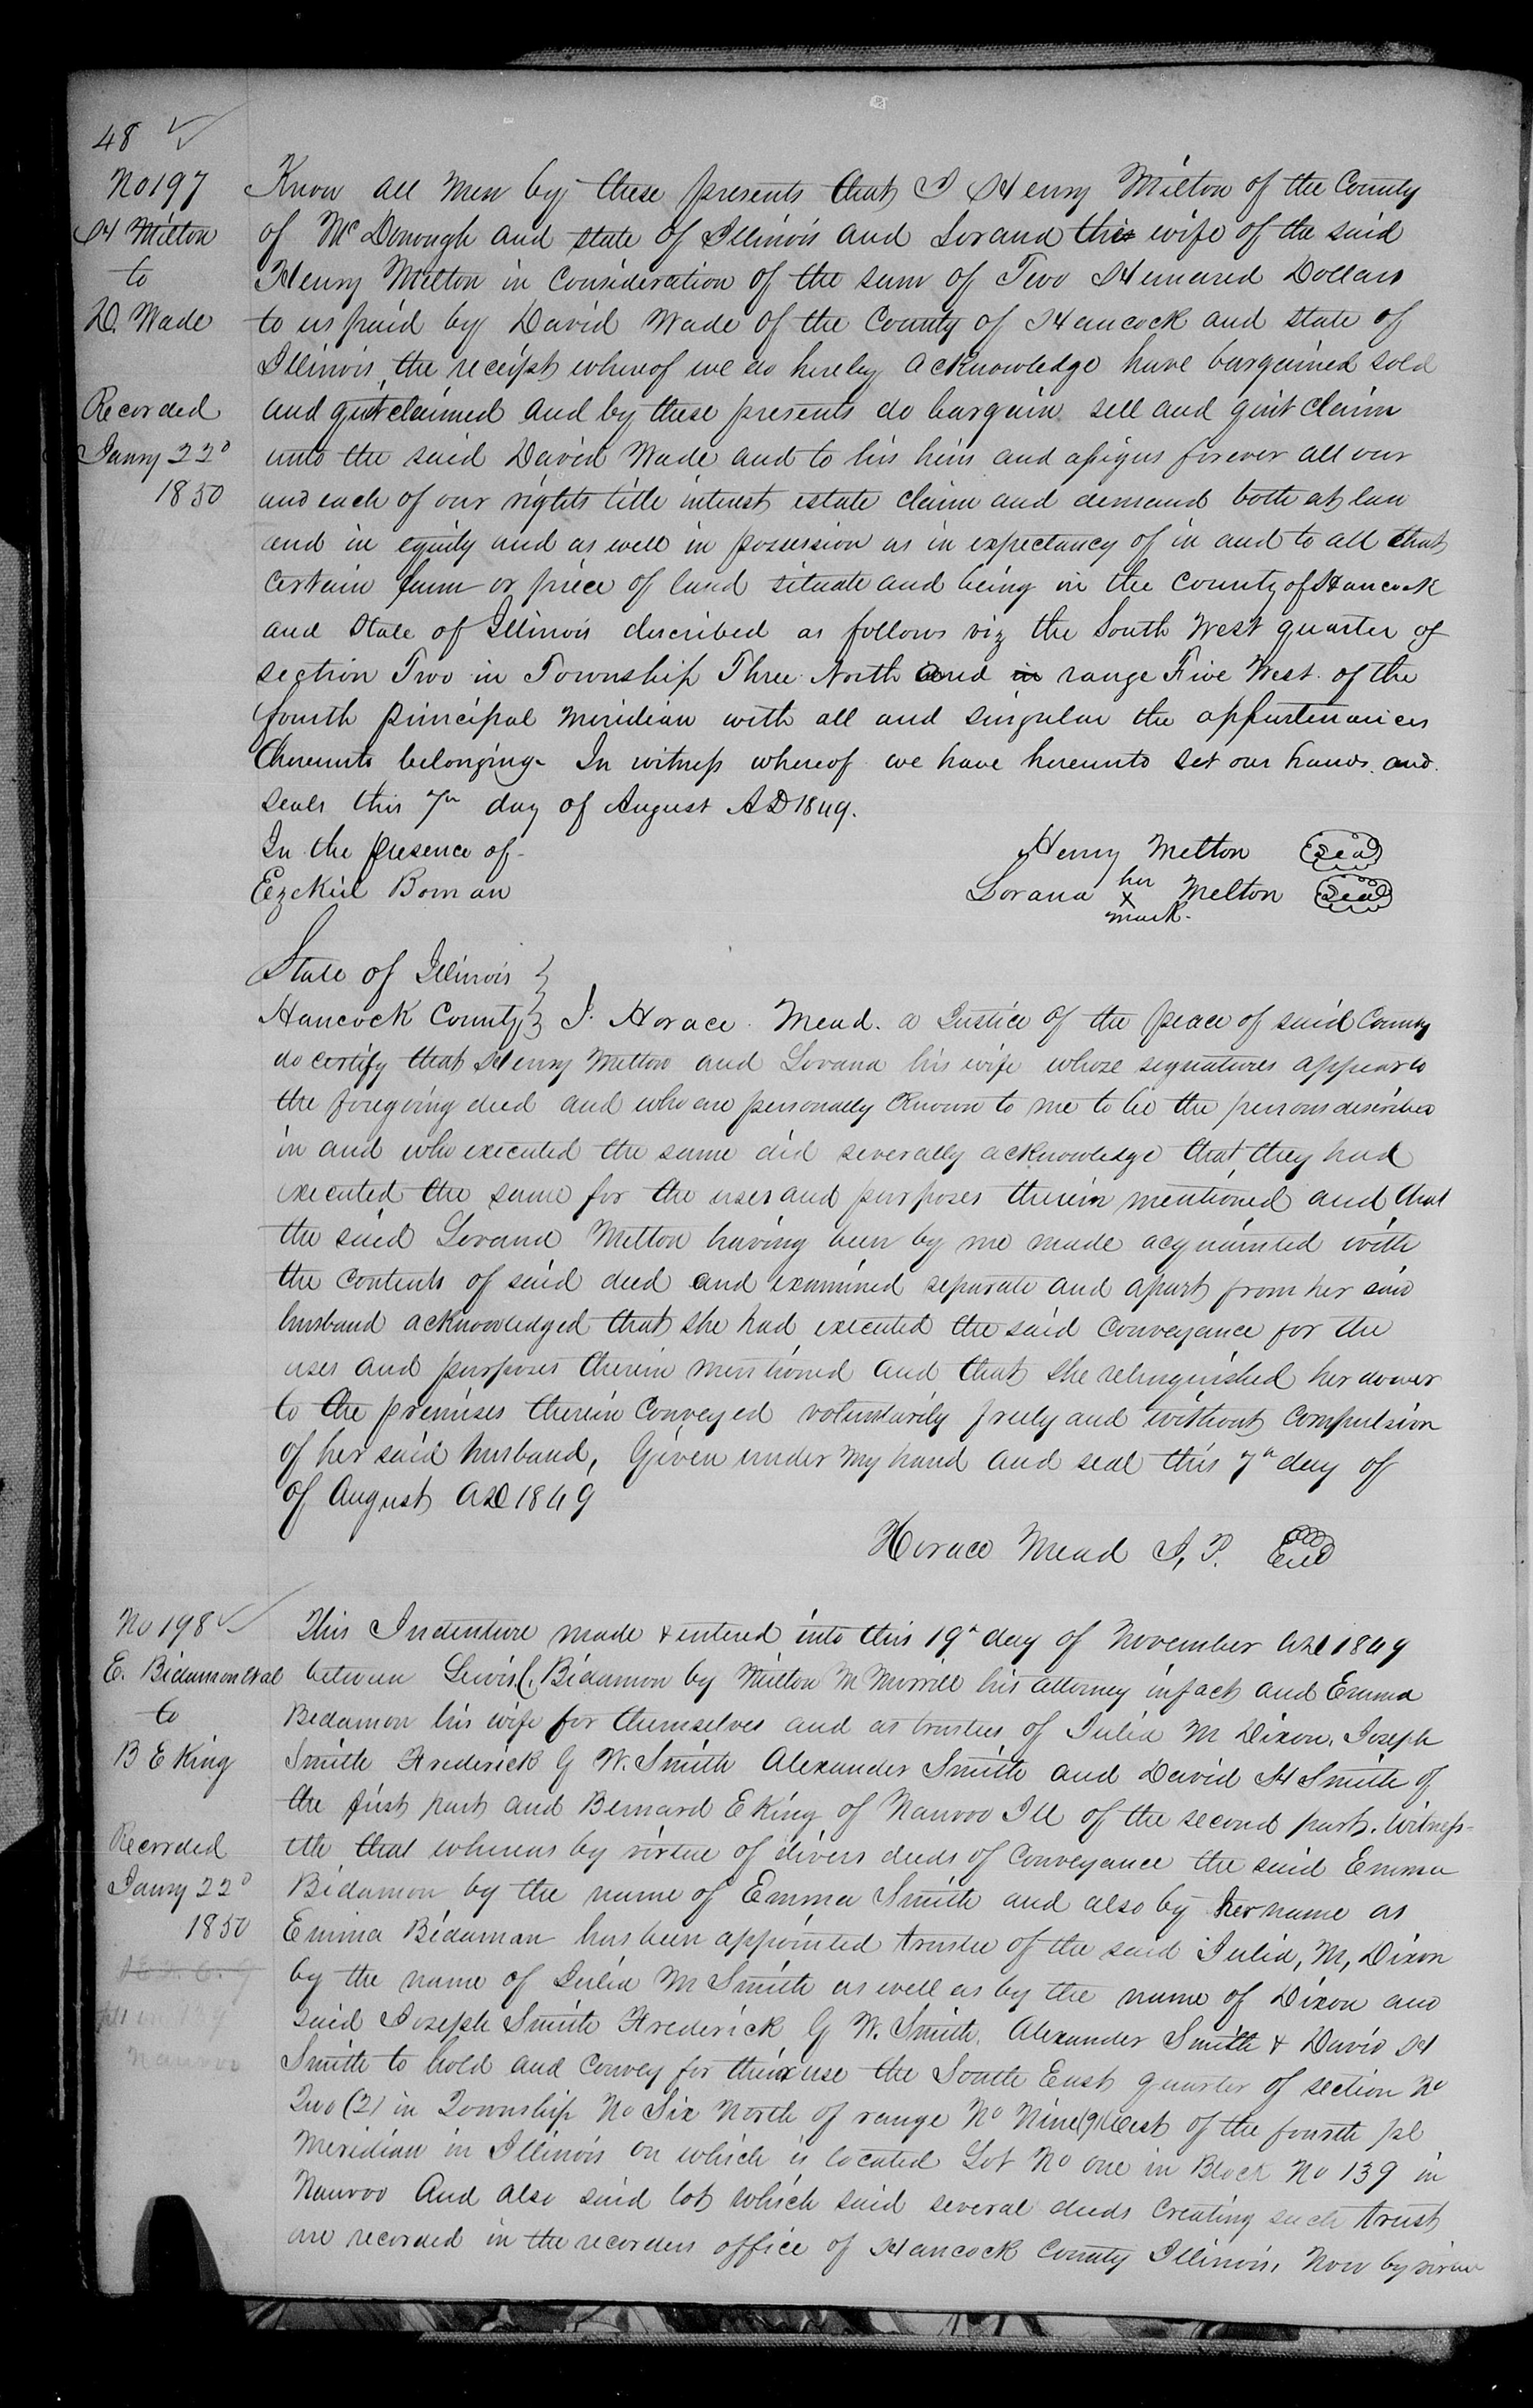 48
No 197
H Milton
to
D. Wade
Recorded
Jany 22d
1850
Know all men by these presents that I Henry Milton of the County
of McDonough and state of Illinois and Lorana the wife of the said
Henry Melton in Consideration of the sum of Two Hundred Dollars
to us paid by David Wade of the County of Hancock and state of
Illinois, the receipt whereof we do hereby acknowledge have bargained sold
and quitclaimed and by these presents do bargain sell and quit claim
unto the said David Wade and to his heirs and assigns forever all our
and each of our rights title interest estate claim and demand both at law
and in equity and as well in possession as in expectancy of in and to all that
certain farm or piece of land situate and being in the County of Hancock
and State of Illinois described as follows viz the South West quarter of
section Two in Township Three North and in range Five West. of the
fourth principal meridian with all and singular the appurtenances
thereunto belonging- In witness whereof we have hereunto set our hands. and.
seals this 7th day of August AD 1849.
In the presence of-
Henry Melton (Seal)
Ezekiel Boman
Lorana her x mark. Melton (Seal)
State of Illinois }
Hancock County } I. Horace. Mead. a Justice of the peace of said County
do certify that Henry Melton and Lorana his wife whose signatures appear to
the foregoing deed and who are personally known to me to be the persons described
in and who executed the same did severally acknowledge that they had
executed the same for the uses and purposes therein mentioned and that
the said Lorana Melton having been by me made acquainted with
the contents of said deed and examined separate and apart from her said
husband acknowledged that she had executed the said conveyance for the
uses and purposes therein mentioned and that she relinquished her dower
to the premises therein conveyed voluntarily freely and without compulsion
of her said husband, Given under my hand and seal this 7th day of
of August AD 1849
Horace Mead J, P. (Seal)
No 198
E. Bidamon et al
to
B E King
Recorded
Jany 22d
1850
Nauvoo
This Indenture made & entered into this 19th day of November AD 1849
between Lewis C. Bidamon by Milton M Morrill his attorney in fact and Emma
Bedamon his wife for themselves and as trustees of Julia M Dixon, Joseph
Smith Frederick G W. Smith Alexander Smith and David H Smith of
the first part and Bernard E King of Nauvoo Ill of the second part. Witness-
eth that whereas by virtue of divers deeds of Conveyance the said Emma
Bidamon by the name of Emma Smith and also by her name as
Emma Bidaman has been appointed trustee of the said Julia, M, Dixon
by the name of Julia M Smith as well as by the name of Dixon and
said Joseph Smith Frederick G W. Smith. Alexander Smith & David H
Smith to hold and convey for their use the South East quarter of section No
Two (2) in Township No Six North of range No Nine (9) West of the fourth pl
Meridian in Illinois on which is located Lot No one in Block No 139 in
Nauvoo And also said lot which said several deeds creating such trust
are recorded in the recorders office of Hancock County Illinois, Now by virtue